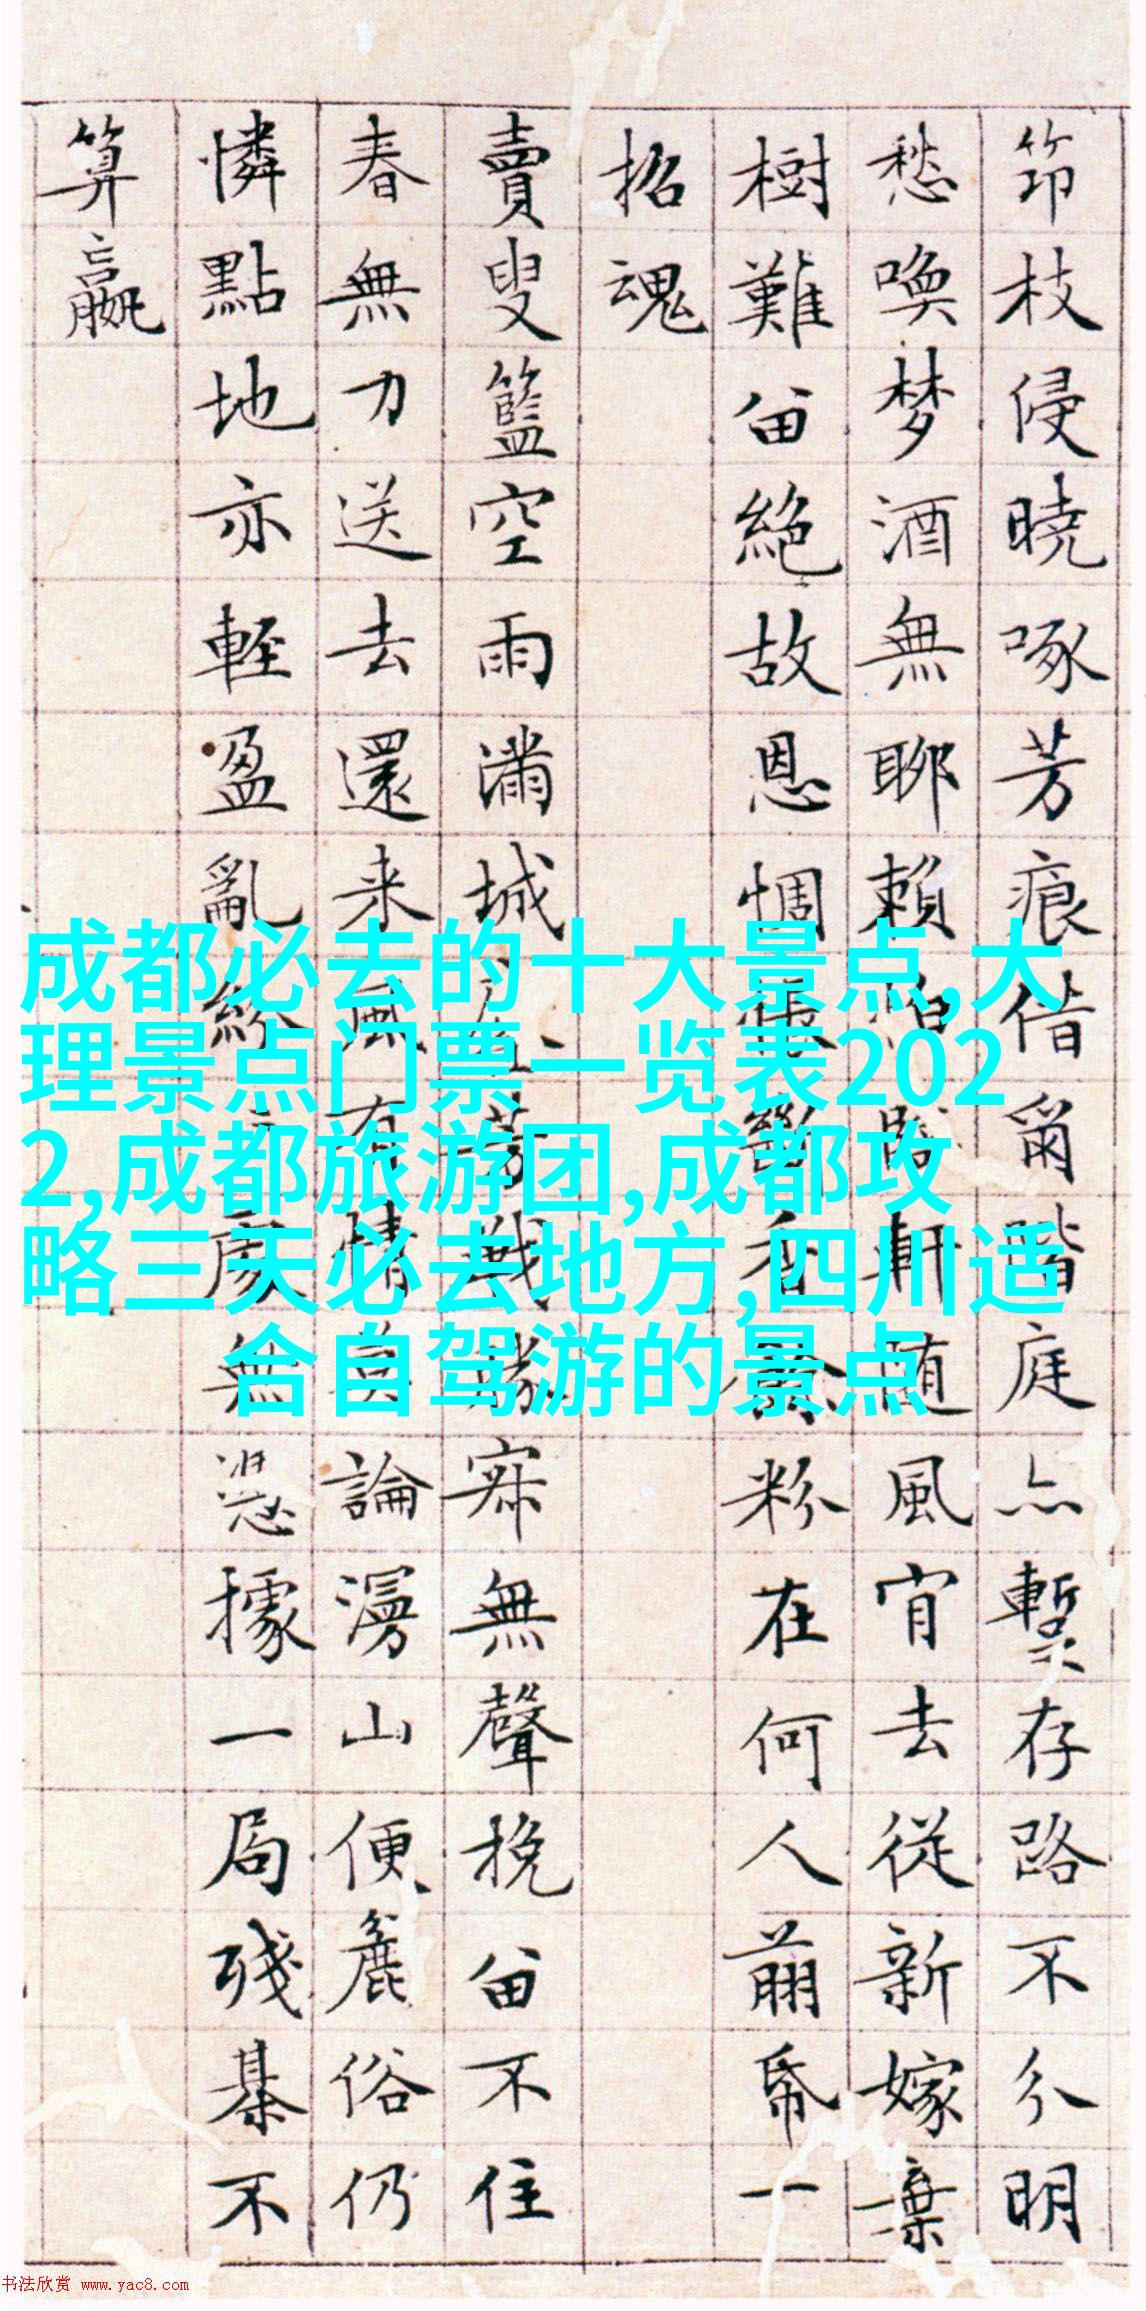 枝侵曉啄芳痕借爾階庭亦暫存路不分明
愁喚梦酒無聊賴怕臨軒随風肯去從新嫁棄
樹難留絕故恩惆悵香餘粉在何人剪一
招魂
賣叟籃空雨滿城芳戰寂無聲挽留不住
春無力送去還来風有情莫論漫山便麄俗仍
憐點地亦輕盈亂紛無憑據一局殘棊不
算贏
成都必去的十大景点,大
理景点门票一览表202
2,成都旅游团,成都攻
略三天必去地方,四川适
合自驾游的景点
书法欣赏 www.yac8.com